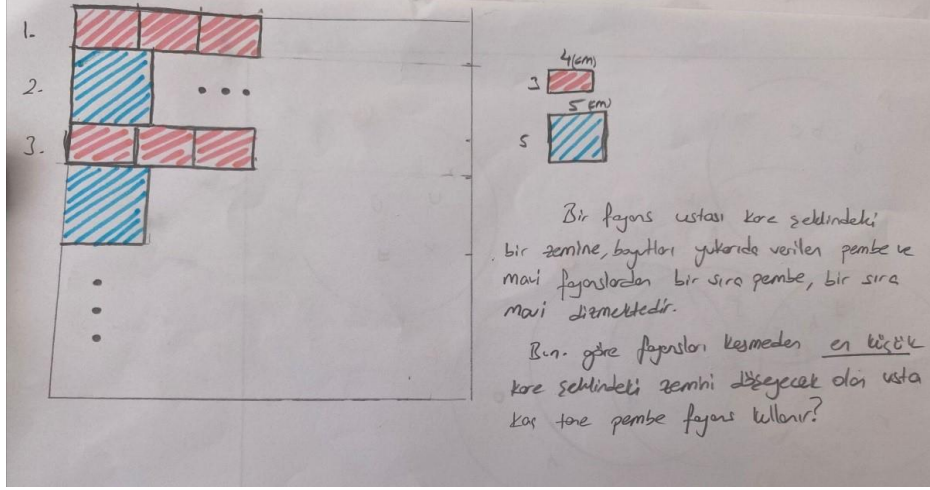 1-
2-
3-
4(cm)
3
5 (cm)
5
Bir fayans ustası kare şeklindeki
bir zemine, boyutları yukarıda verilen pembe ve
mavi fayanslardan bir sıra pembe, bir sıra
mavi dizmektedir.
Bun. göre fayansları kesmeden en küçük
kare şeklindeki zemini döşeyecek olan usta
kaç tane pembe fayans kullanır?